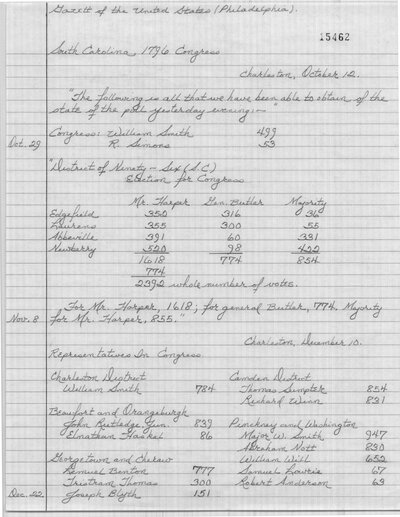 Gazett of the United States (Philadelphia).
15462
South Carolina, 1796 Congress
Charleston, October 12.
"The following is all that we have been able to obtain of the
state of the poll yesterday evening:—"
Congress: William Smith 499
Oct. 29 R. Simons 53
"District of Ninety-Six (S.C)
Election for Congress
Mr. Harper Gen. Butler Majority
Edgefield 350 316 34
Laurens 355 300 55
Abbeville 391 60 331
Newberry 520 98 422
1618 774 854
774
2392 whole number of votes.
For Mr. Harper, 1618; for general Butler, 774, Majority
Nov. 8 for Mr. Harper, 855."
Charleston, December 10.
Representatives In Congress
Charleston District Camden District
William Smith 784 Thomas Sumpter 854
Richard Winn 831
Beaufort and Orangeburgh
John Rutledge Jun. 839 Pinckney and Washington
Elnathan Haskel 86 Major W. Smith 947
Abraham Nott 830
Georgetown and Cheraw William Will 652
Lemuel Benton 777 Samuel Lowrie 67
Tristram Thomas 300 Robert Anderson 63
Dec. 22. Joseph Blyth 151